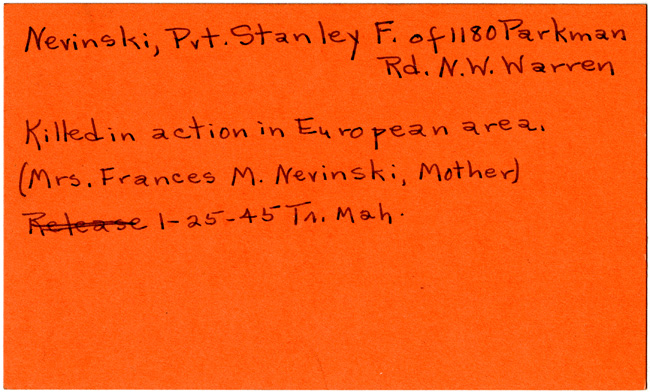 Nevinski, Pvt. Stanley F. of 1180 Parkman
Rd. N.W. Warren
Killed in action in European area.
(Mrs. Frances M. Nevinski, Mother)
Release 1-25-45 Tr. Mah.